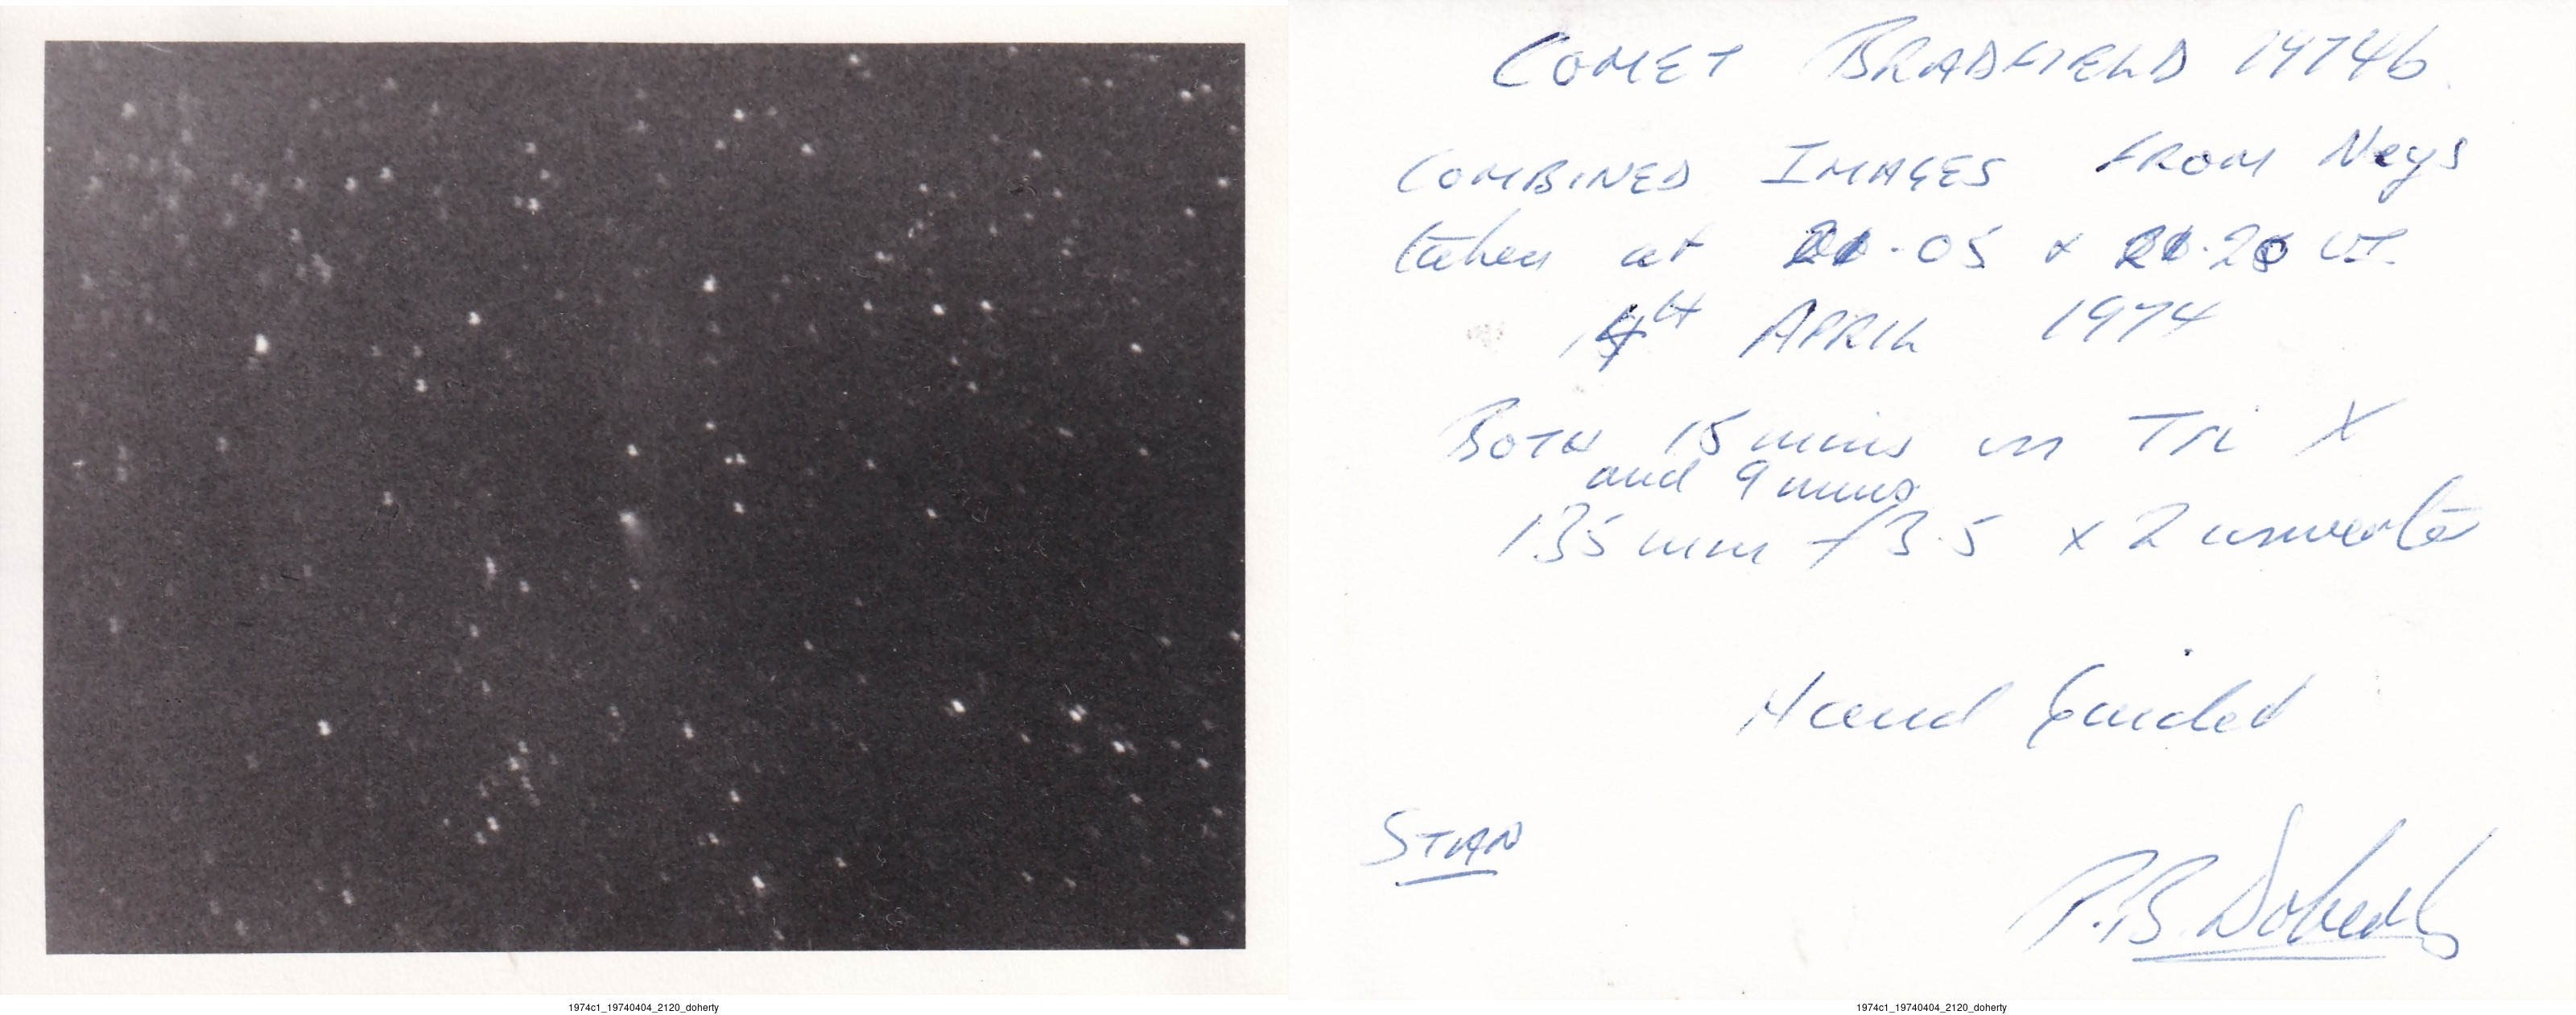 COMET BRADFIELD 1974b
COMBINED IMAGES FROM Negs
taken at 21.05 & 21.20 UT.
4th APRIL 1974
BOTH 15 mins on Tri X
and 9 mins
135 mm f/3.5 x 2 converter
Hand Guided
STAN
P.B. Doherty
1974c1_19740404_2120_doherty
1974c1_19740404_2120_doherty